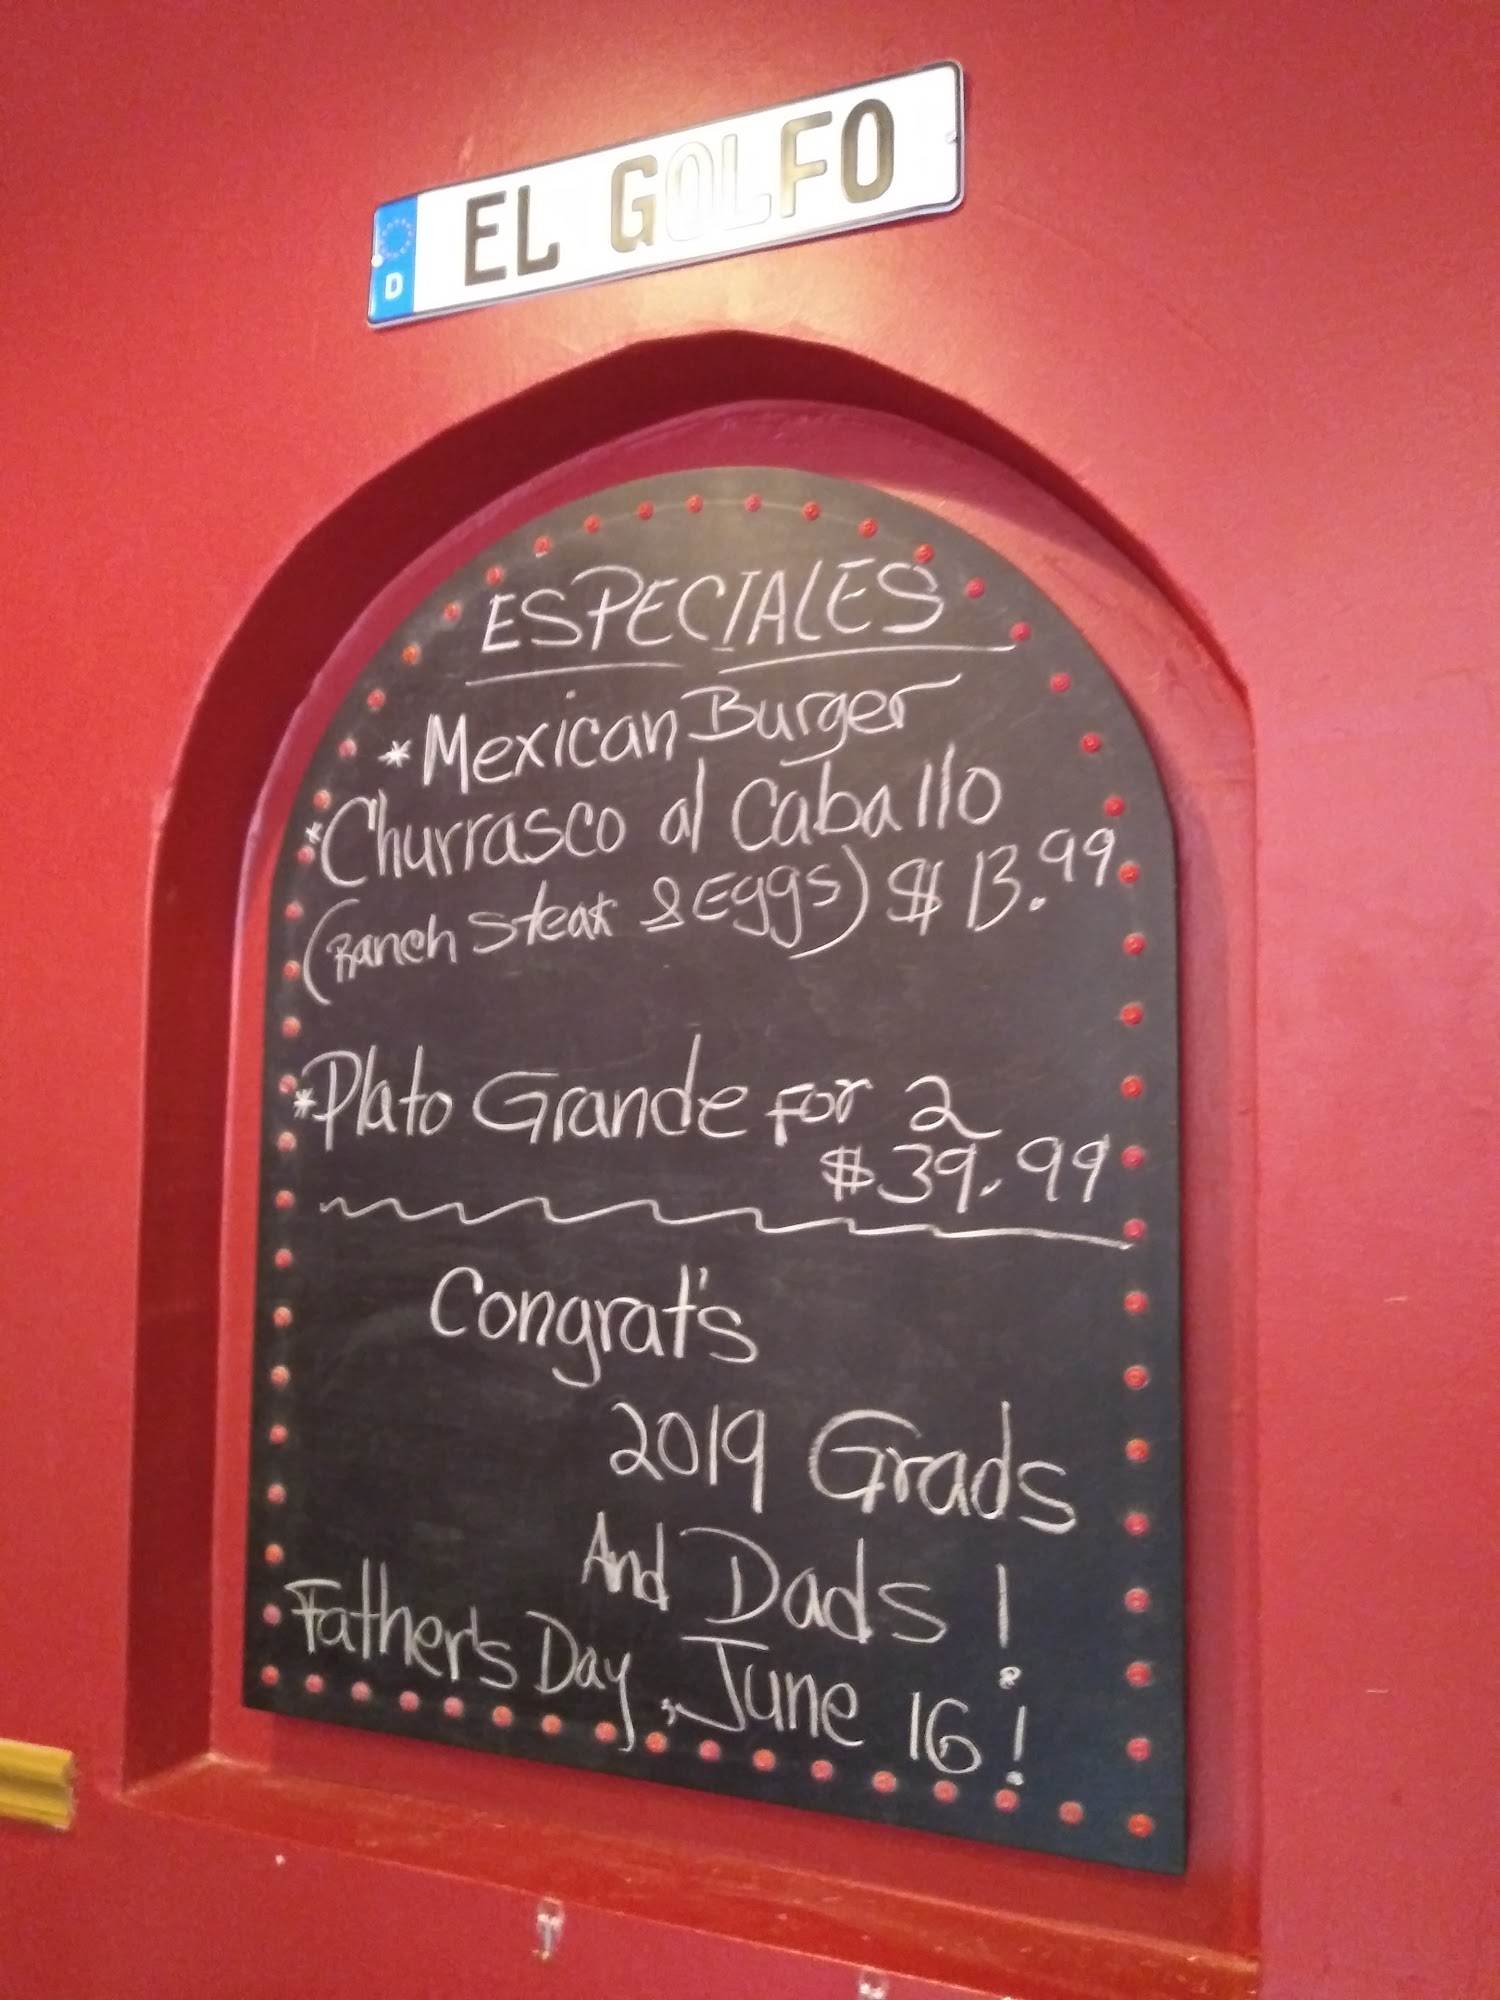 EL GOLFO
D
ESPECIALES
*Mexican Burger
*Churrasco al Caballo
(Ranch Steak & Eggs) $13.99
*Plato Grande For 2
$39.99
Congrat's
2019 Grads
And Dads!
Father's Day, June 16!